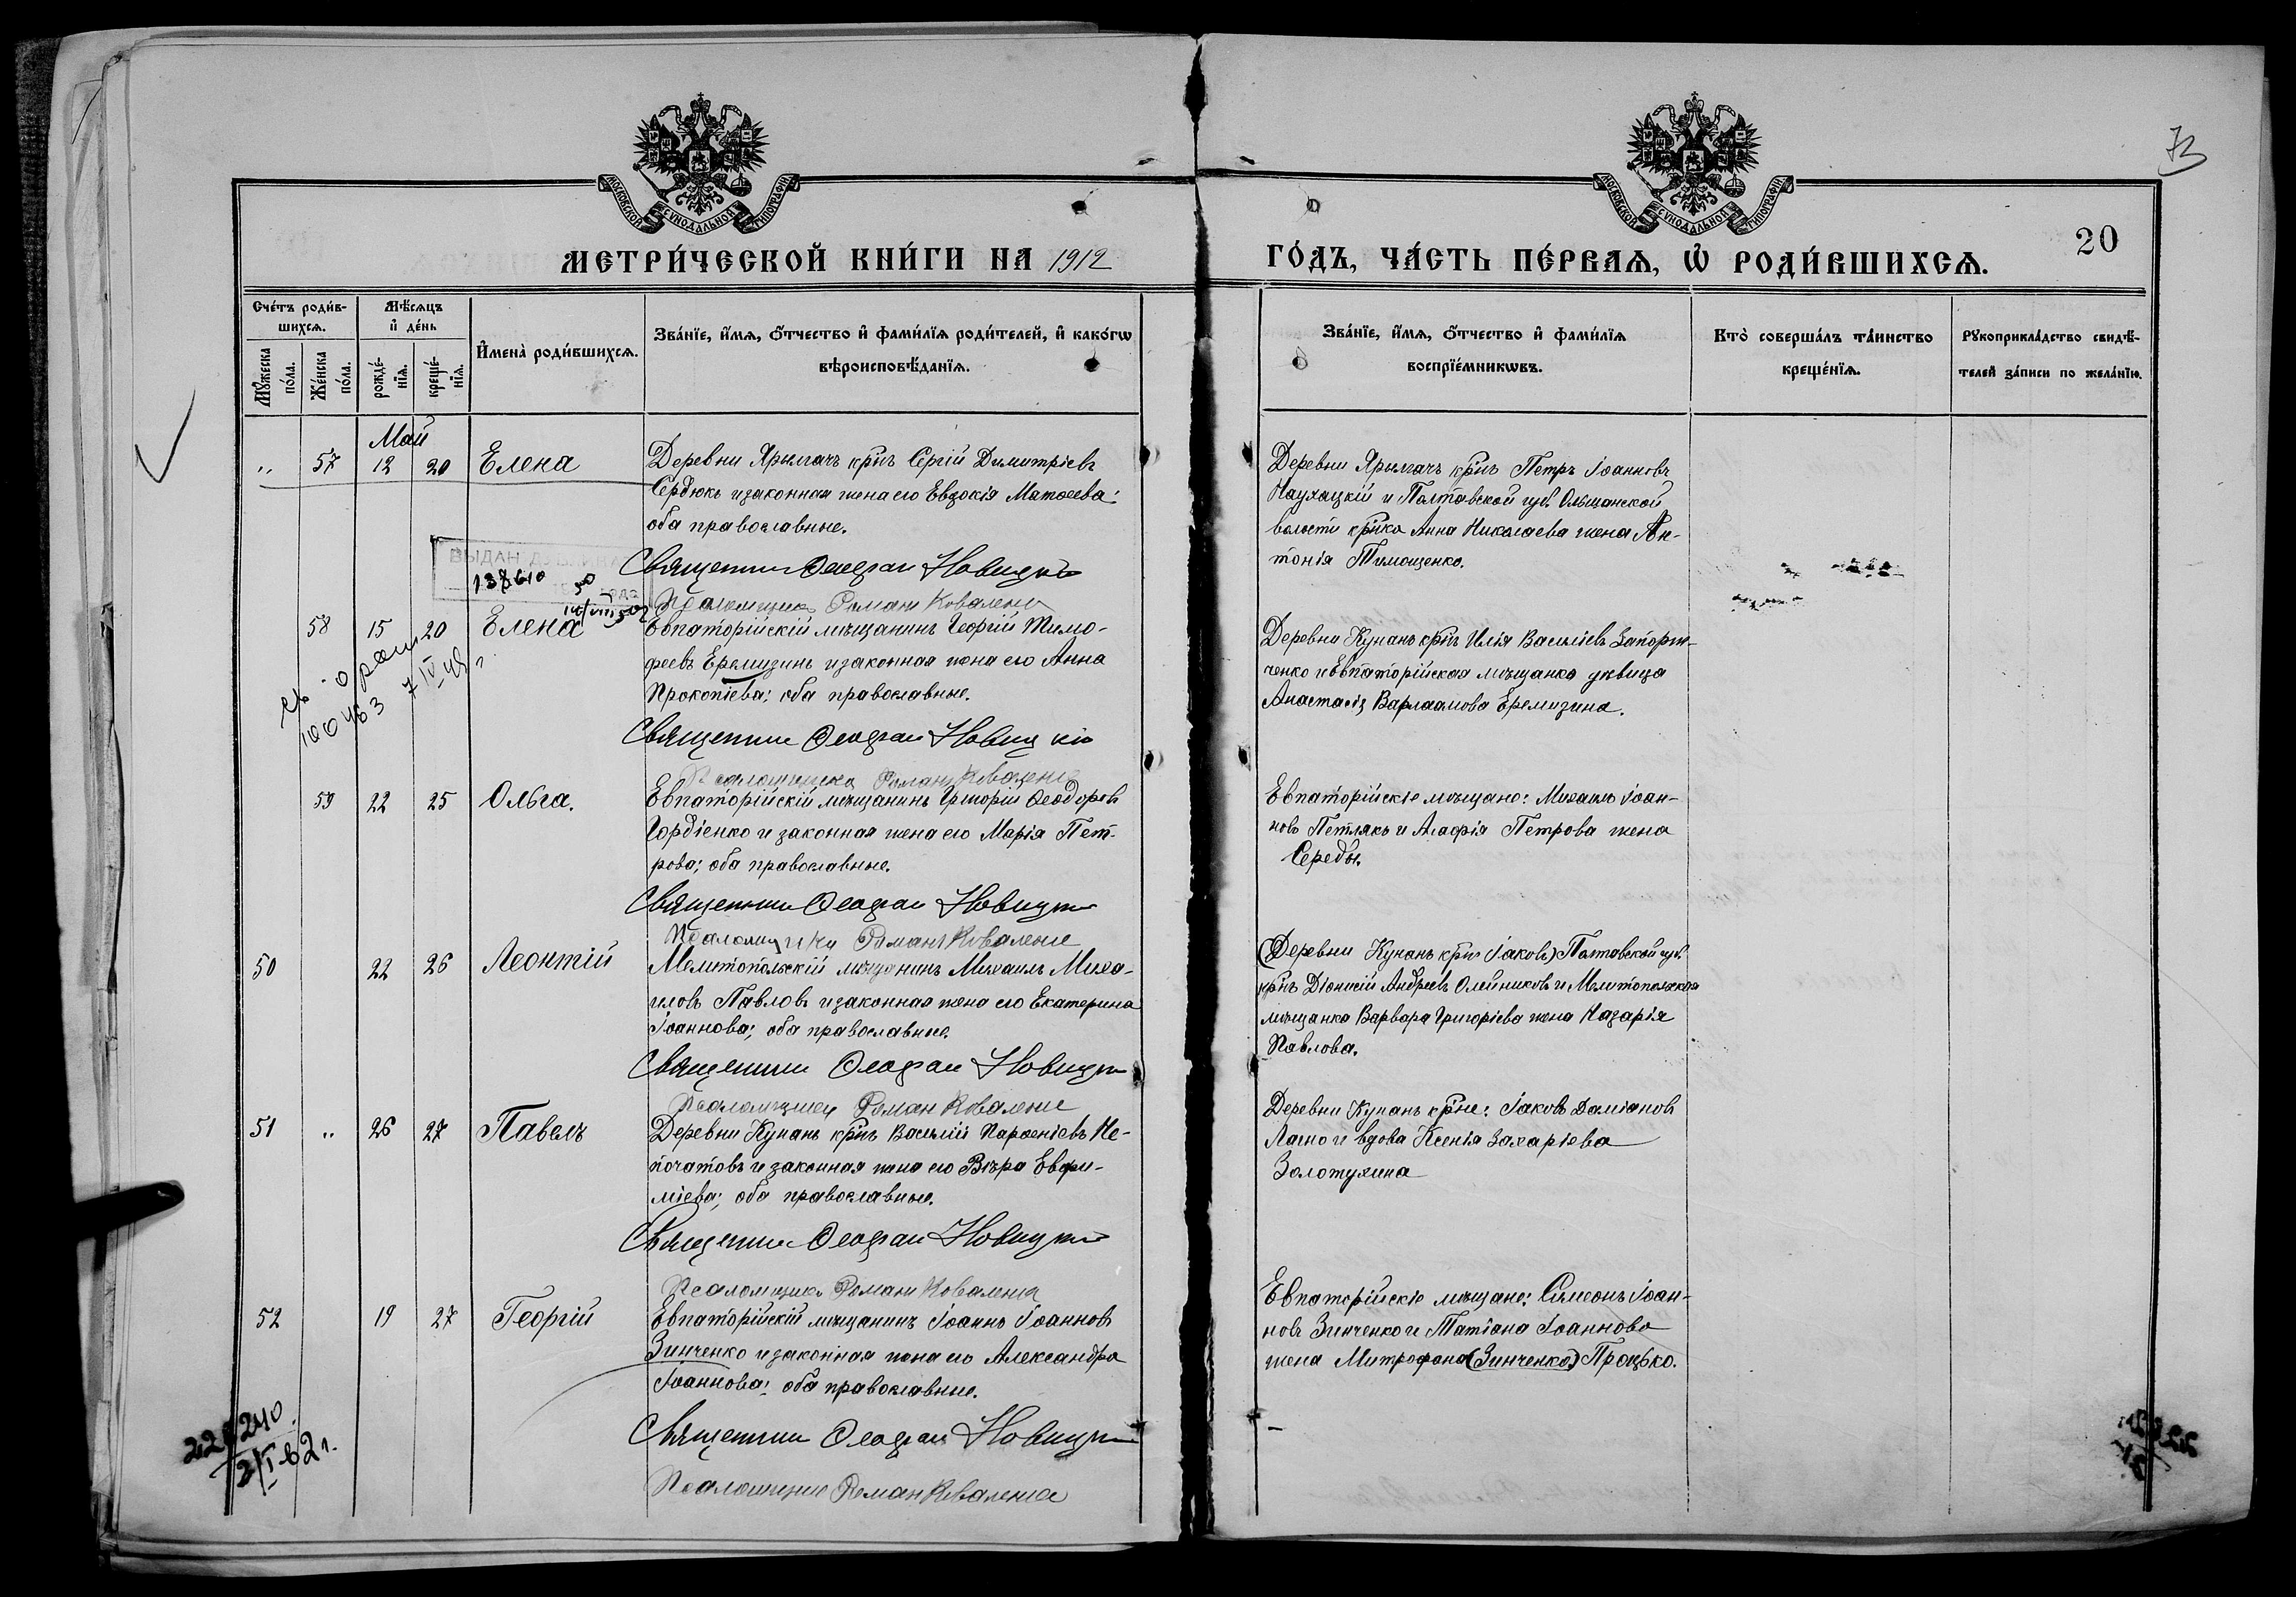 73
МОСКОВСКОЙ СУНОДАЛЬНОЙ ТИПОГРАФІИ
МОСКОВСКОЙ СУНОДАЛЬНОЙ ТИПОГРАФІИ
МЕТРИ́ЧЕСКОЙ КНИ́ГИ НА 1912
ГО́ДЪ, ЧА́СТЬ ПЕ́РВАѦ, Ѡ҆ РОДИ́ВШИХСѦ.
20
Сче́тъ роди́в-
шихсѧ.
Мѣ́сѧцъ
и҆ де́нь
Мꙋ́жеска по́ла.
Же́нска по́ла.
рожде́-
нїѧ.
креще́-
нїѧ.
И҆мена̀ роди́вшихсѧ.
Зва́нїе, и҆́мѧ, ѻ҆́тчество и҆ фами́лїѧ роди́телей, и҆ како́гѡ
вѣроисповѣ́данїѧ.
Зва́нїе, и҆́мѧ, ѻ҆́тчество и҆ фами́лїѧ
воспрїе́мникѡвъ.
Кто̀ соверша́лъ та́инство
креще́нїѧ.
Рꙋкоприкла́дство свидѣ́-
телей за́писи по жела́нїю.
Май
„ 57 12 20 Елена
Деревни Ярылгачъ крнъ Сергій Димитріевъ
Сердюкъ и законная жена его Евдокія Матѳеева:
оба православные.
Священник Ѳеофан Новицкій
Псаломщикъ Роман Коваленко
Деревни Ярылгачъ крнъ Петръ Іоанновъ
и Полтавской губ. Ольшанской
волости крнка Анна Николаева жена Ан-
тонія Тимощенко.
ВЫДАН
138640
58 15 20 Елена
Евпаторійскій мѣщанинъ Георгій Тимо-
феевъ Еремизинъ и законная жена его Анна
Прокопіева; оба православные.
Священник Ѳеофан Новицкій
Псаломщикъ Роман Коваленко
Деревни Кунанъ крнъ Илія Василіевъ Запорж-
ченко и Евпаторійская мѣщанка дѣвица
Анастасія Варлаамова Еремизина.
100463 7/IV 49
59 22 25 Ольга.
Евпаторійскій мѣщанинъ Григорій Ѳеодоровъ
Гордіенко и законная жена его Марія Пет-
рова; оба православные.
Священник Ѳеофан Новицкій
Псаломщикъ Роман Коваленко
Евпаторійскіе мѣщане: Михаилъ Іоан-
новъ Петлякъ и Агафія Петрова жена
Середы.
50 22 26 Леонтій
Мелитопольскій мѣщанинъ Михаилъ Миха-
иловъ Павловъ и законная жена его Екатерина
Іоаннова; оба православные.
Священник Ѳеофан Новицкій
Псаломщикъ Роман Коваленко
(Деревни Кунанъ крнъ Іаковъ) Полтавской губ.
крнъ Діонисій Андреевъ Олейниковъ и Мелитопольская
мѣщанка Варвара Григоріева жена Назарія
Павлова.
51 „ 26 27 Павелъ
Деревни Кунанъ крнъ Василій Парѳеніевъ Не-
початовъ и законная жена его Вѣра Евфи-
міева; оба православные.
Священник Ѳеофан Новицкій
Псаломщикъ Роман Коваленко
Деревни Кунанъ крне: Іаковъ Даміановъ
Лагно и вдова Ксенія Захаріева
Золотухина
52 19 27 Георгій
Евпаторійскій мѣщанинъ Іоаннъ Іоанновъ
Зинченко и законная жена его Александра
Іоаннова; оба православные.
Священник Ѳеофан Новицкій
Псаломщикъ Роман Коваленко
Евпаторійскіе мѣщане: Симеонъ Іоан-
новъ Зинченко и Татіана Іоаннова
жена Митрофана (Зинченко) Процько.